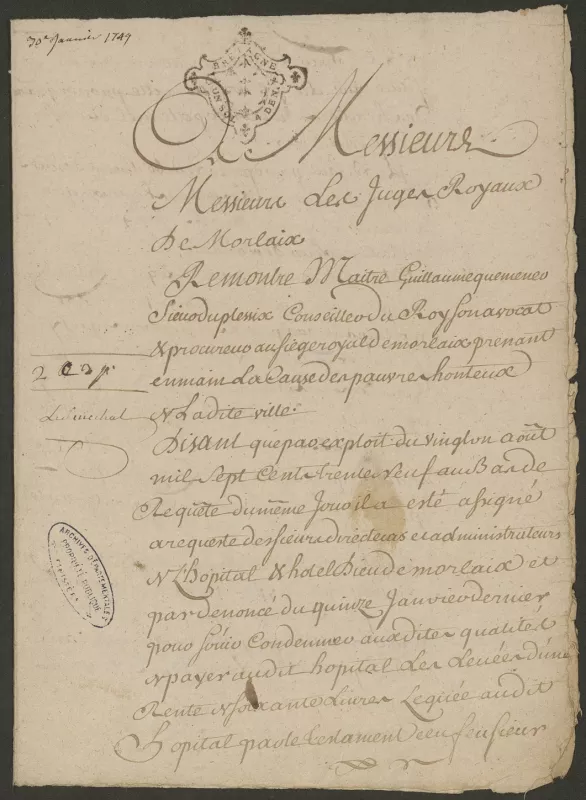 30e Janvier 1749
BRETAGNE
UN SOL
4 DEN.
A Messieurs
Messieurs Les Juges Royaux
De Morlaix
Remontre Maitre Guillaume quemener
Sieur duplessix Conseiller du Roy son avocat
& procureur au siege royal de morlaix prenant
en main La Cause des pauvres honteux
de Ladite ville.
Disant que par exploit du vingt un août
mil sept cent trente neuf au Bas de
Requête du même Jour il a esté assigné
a requeste des sieurs directeurs et administrateurs
de L'hopital & hotel Dieu de morlaix et
par denoncé du quinze Janvier dernier
pour souir Condemner auxdites qualités
de payer audit hopital Les Levées d'une
Rente de soixante Livres Leguée audit
hopital par le testament de feu sieur
ARCHIVES DÉPARTEMENTALES
PROPRIÉTÉ PUBLIQUE
FINISTÈRE